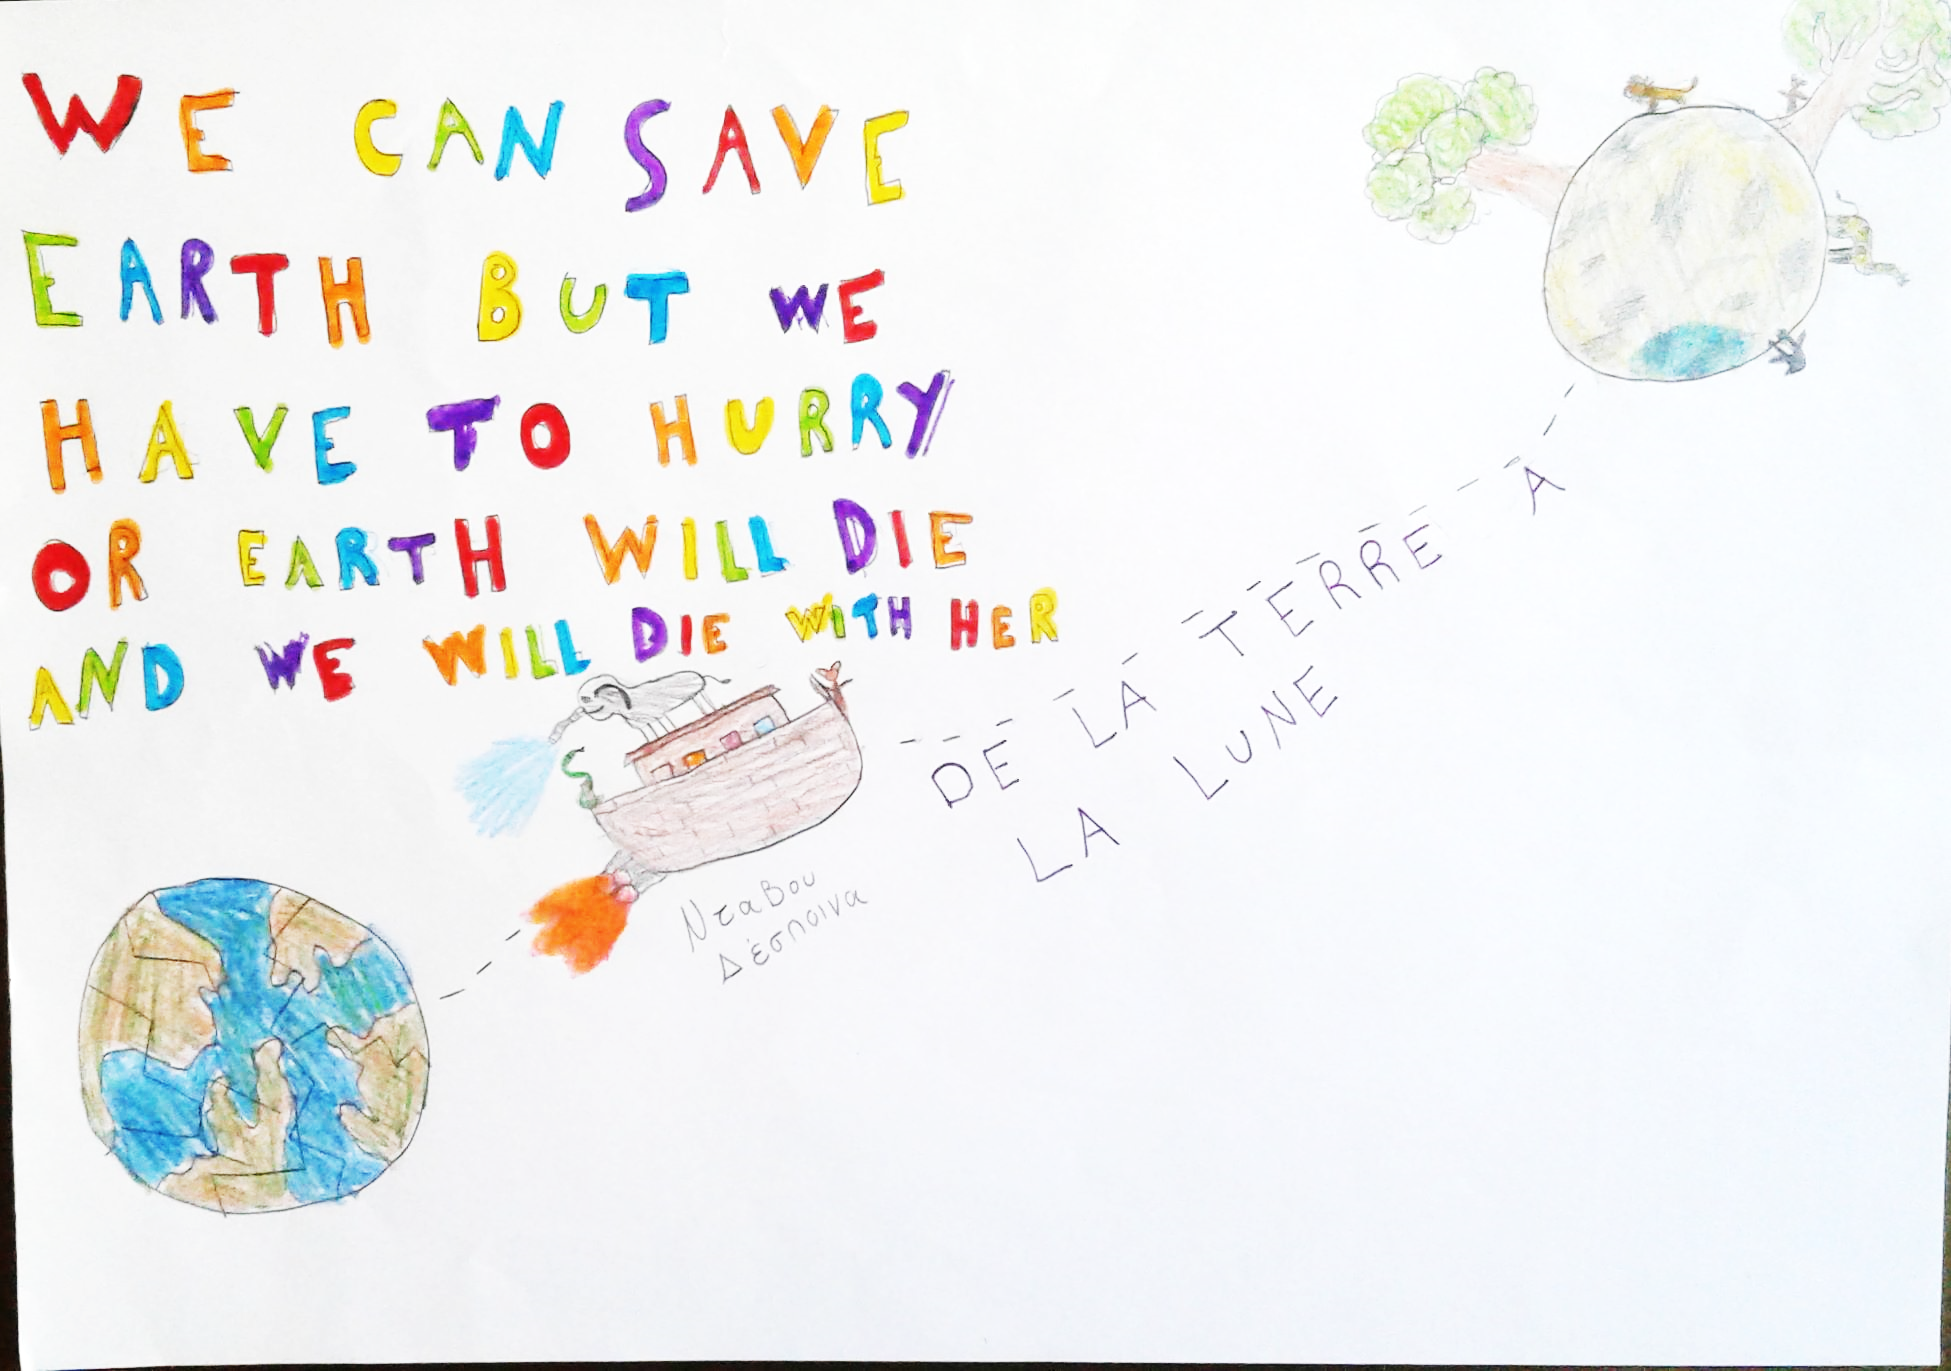 WE CAN SAVE
EARTH BUT WE
HAVE TO HURRY
OR EARTH WILL DIE
AND WE WILL DIE WITH HER
DE LA TERRE A
LA LUNE
Νταβου
Δέσποινα